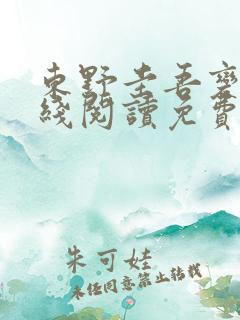 東野圭吾變
綫閱讀免費
朱可娃
未经同意禁止转载